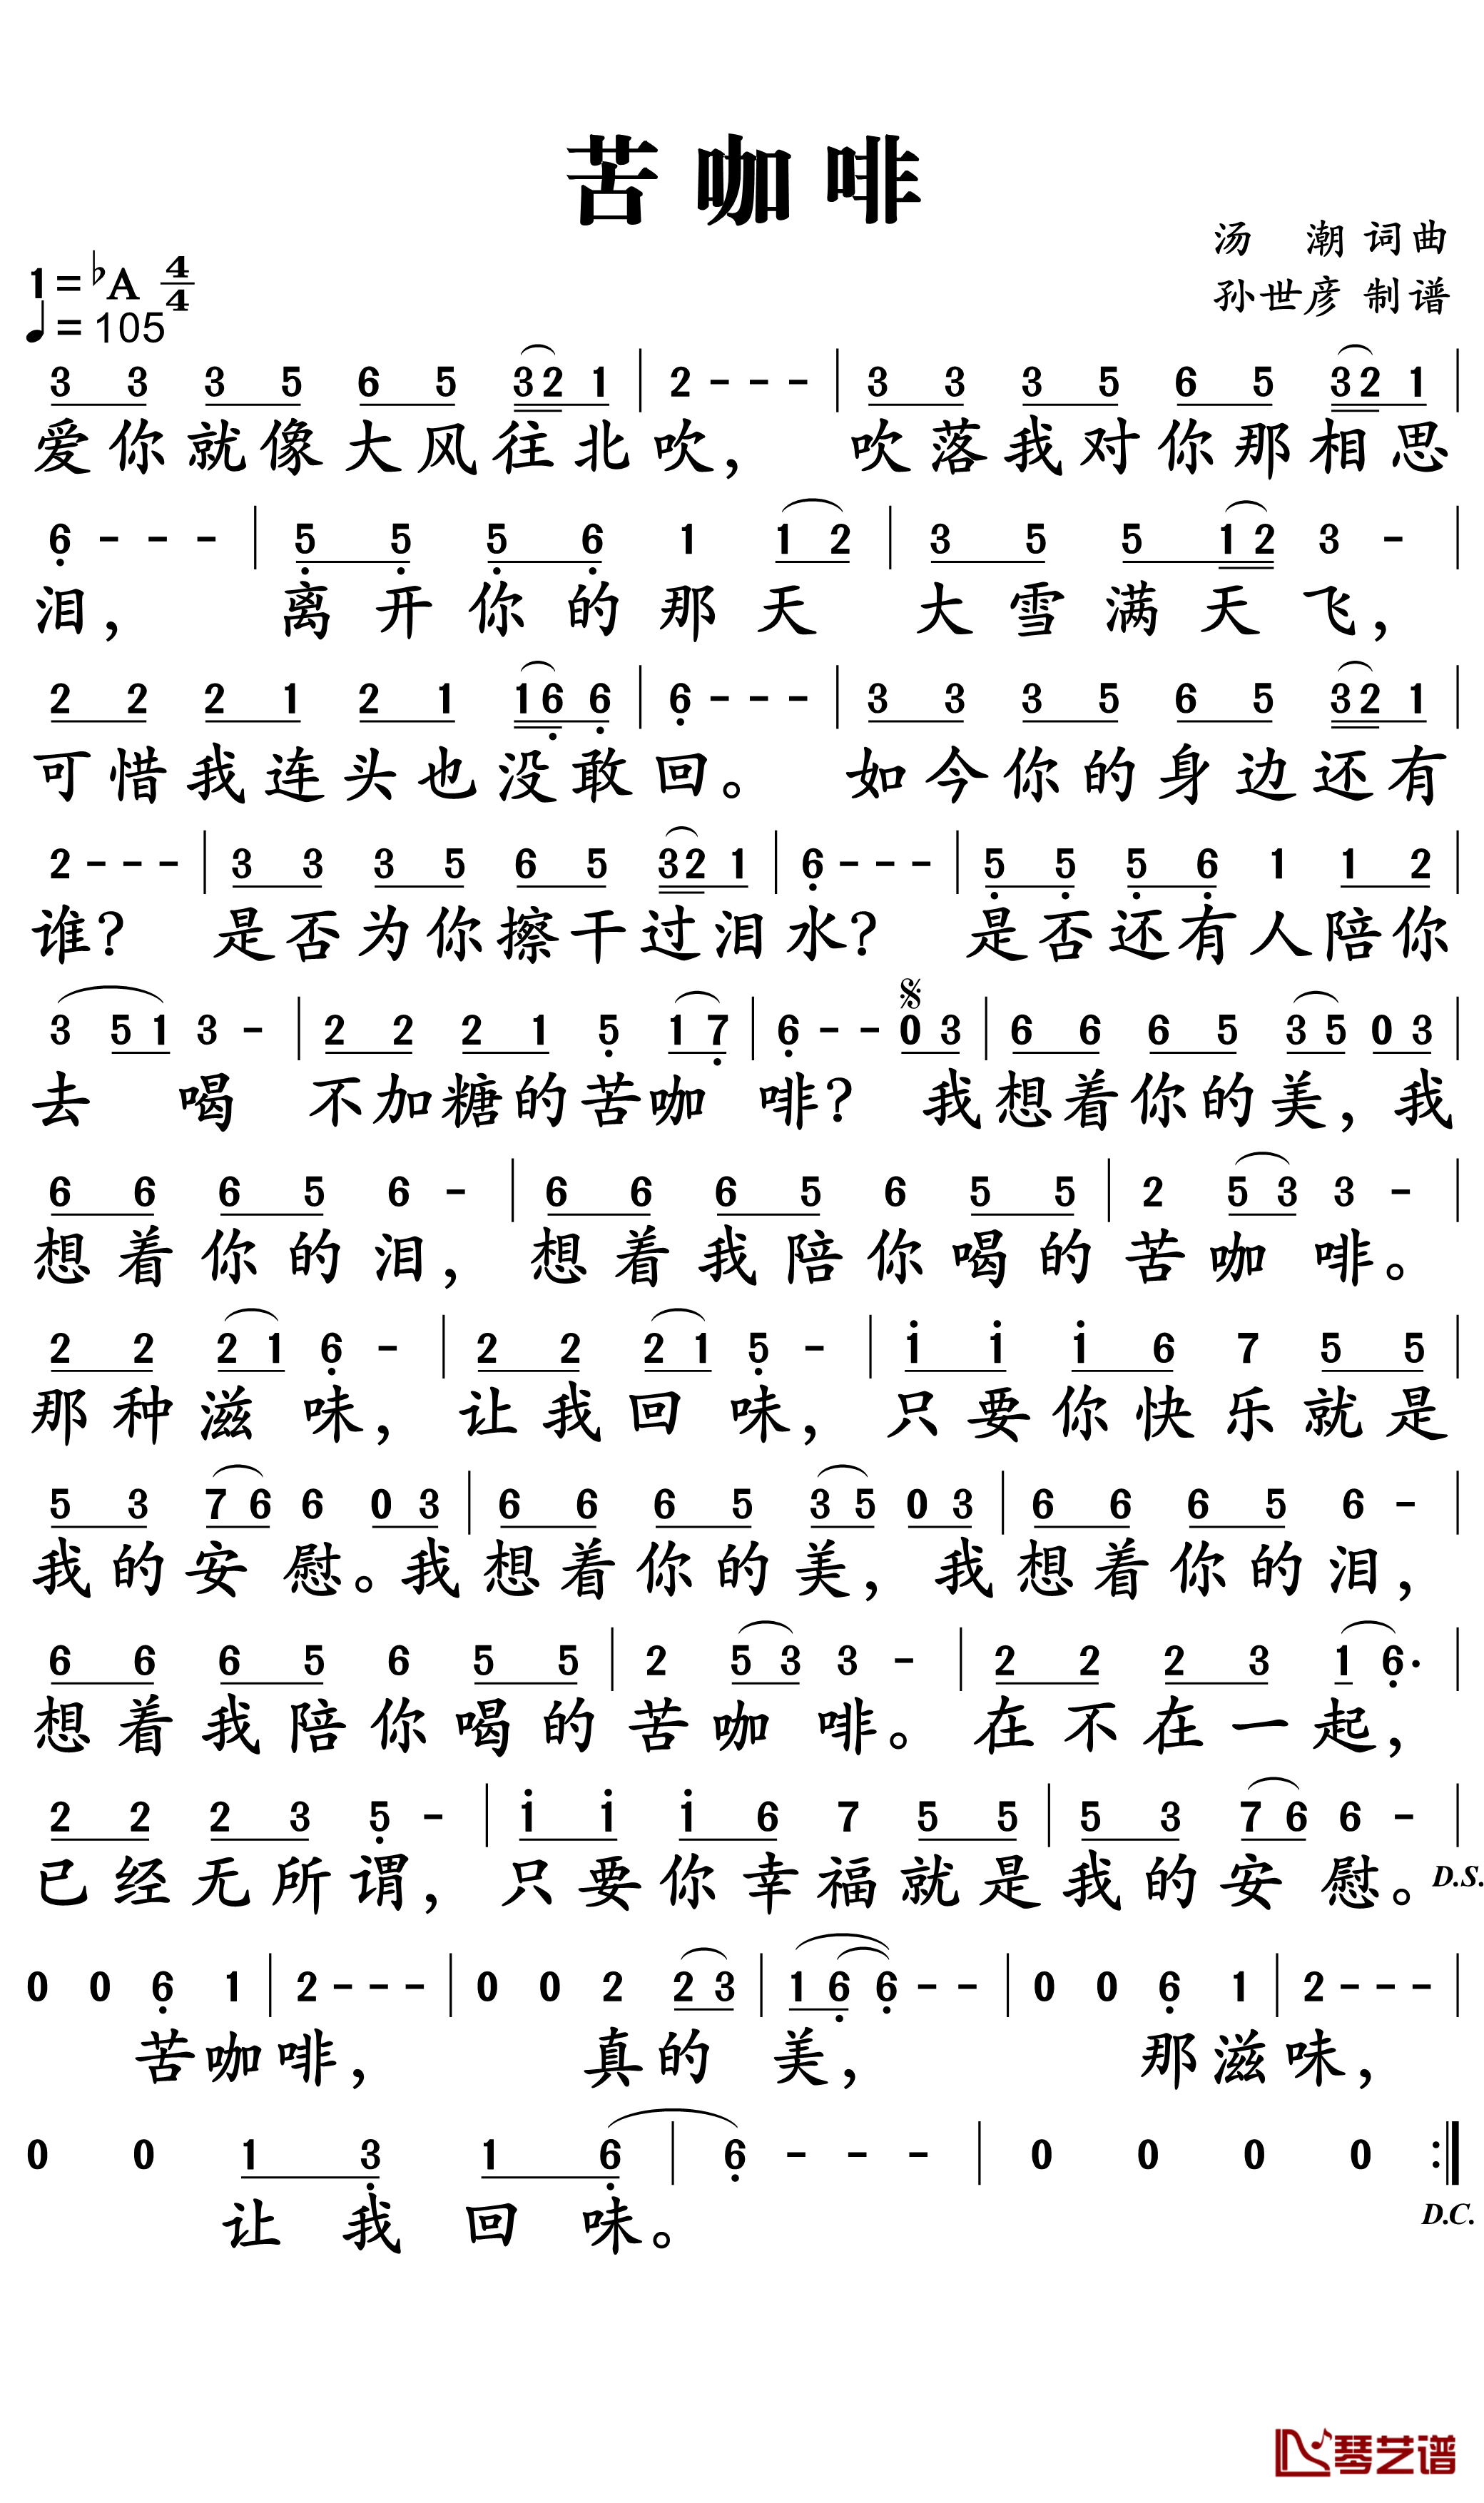 苦咖啡
汤 潮 词曲
孙世彦 制谱
1=♭A 4/4
♩=105
3 3 3 5 6 5 32 1 | 2 - - - | 3 3 3 5 6 5 32 1 |
爱你就像大风往北吹,吹落我对你那相思
6 - - - | 5 5 5 6 1 1 2 | 3 5 5 12 3 - |
泪,离开你的那天大雪满天飞,
2 2 2 1 2 1 16 6 | 6 - - - | 3 3 3 5 6 5 32 1 |
可惜我连头也没敢回。如今你的身边还有
2 - - - | 3 3 3 5 6 5 32 1 | 6 - - - | 5 5 5 6 1 1 2 |
谁?是否为你擦干过泪水?是否还有人陪你
3 51 3 - | 2 2 2 1 5 17 | 6 - - 0 3 | 6 6 6 5 35 0 3 |
去喝不加糖的苦咖啡?我想着你的美,我
6 6 6 5 6 - | 6 6 6 5 6 5 5 | 2 53 3 - |
想着你的泪,想着我陪你喝的苦咖啡。
2 2 2 1 6 - | 2 2 2 1 5 - | 1 1 1 6 7 5 5 |
那种滋味,让我回味,只要你快乐就是
5 3 76 6 0 3 | 6 6 6 5 35 0 3 | 6 6 6 5 6 - |
我的安慰。我想着你的美,我想着你的泪,
6 6 6 5 6 5 5 | 2 53 3 - | 2 2 2 3 1 6· |
想着我陪你喝的苦咖啡。在不在一起,
2 2 2 3 5 - | 1 1 1 6 7 5 5 | 5 3 76 6 - |
已经无所谓,只要你幸福就是我的安慰。D.S.
0 0 6 1 | 2 - - - | 0 0 2 23 | 16 6 - - | 0 0 6 1 | 2 - - - |
苦咖啡,真的美,那滋味,
0 0 1 3 1 6 | 6 - - - | 0 0 0 0 :‖
让我回味。 D.C.
琴艺谱